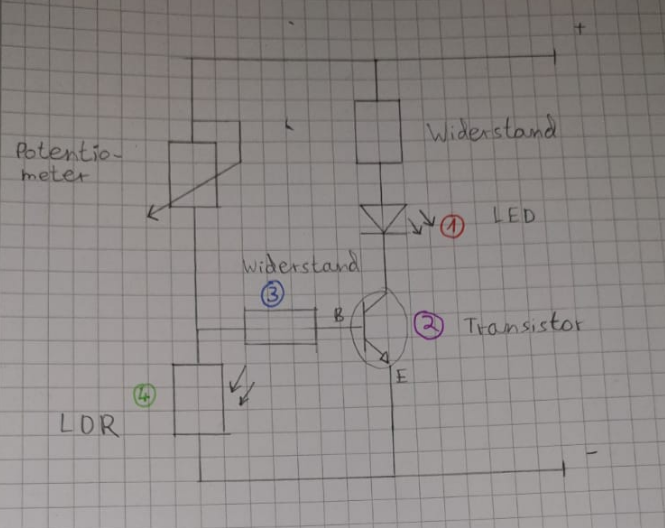 +
Widerstand
Potentio-
meter
① LED
Widerstand
③
B
② Transistor
E
④
LDR
-